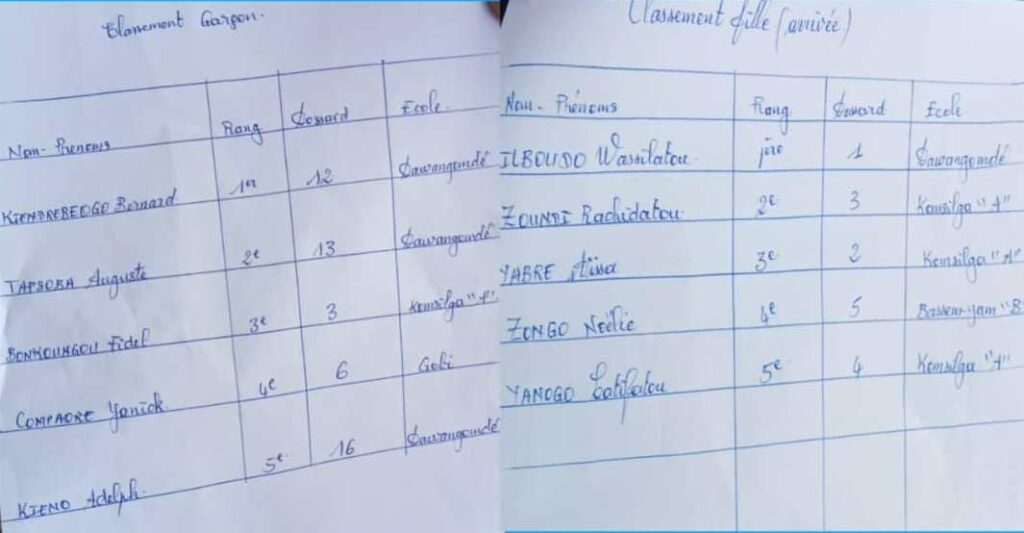 Classement Garçon.
Nom- Prénoms Rang Dossard Ecole.
KIENDREBEOGO Bernard 1er 12 Dawangomdé
TAPSOBA Auguste 2e 13 Dawangomdé
BONKOUNGOU Fidel 3e 3 Komsilga "A"
COMPAORE Yanick 4e 6 Gobi
KIENO Adolph. 5e 16 Dawangomdé
Classement fille (arrivée)
Nom- Prénoms Rang Dossard Ecole
ILBOUDO Wassilatou 1ère 1 Dawangomdé
ZOUNDI Rachidatou 2e 3 Komsilga "A"
YABRE Aïssa 3e 2 Komsilga "A"
ZONGO Noélie 4e 5 Bassem-yam "B
YANOGO Latifatou 5e 4 Komsilga "A"